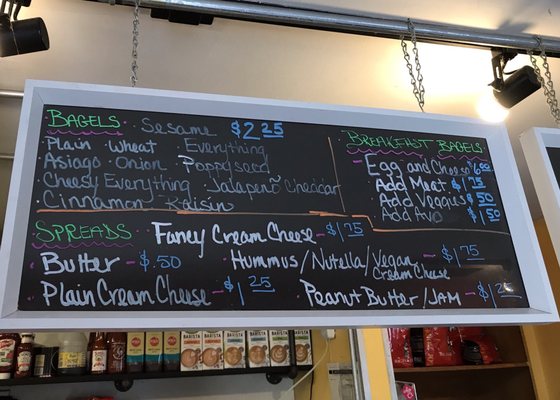 BAGELS Sesame $2.25
Plain Wheat Everything
Asiago Onion Poppyseed
Cheesy Everything Jalapeño Cheddar
Cinnamon Raisin
BREAKFAST BAGELS
Egg and Cheese
Add Meat $1.75
Add Veggies $.50
Add Avo $1.50
SPREADS Fancy Cream Cheese - $1.75
Butter - $.50 Hummus/Nutella/Vegan Cream Cheese - $1.75
Plain Cream Cheese - $1.25 Peanut Butter/JAM - $1.25
BARISTA BARISTA BARISTA BARISTA BARISTA BARISTA